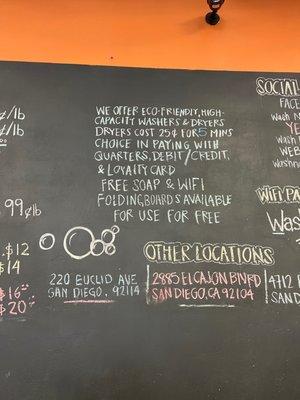 WE OFFER ECO-FRIENDLY, HIGH-
CAPACITY WASHERS & DRYERS
DRYERS COST 25¢ FOR 5 MINS
CHOICE IN PAYING WITH
QUARTERS, DEBIT/CREDIT,
& LOYALTY CARD
FREE SOAP & WIFI
FOLDING BOARDS AVAILABLE
FOR USE FOR FREE
¢/lb
¢/lb
99¢/lb
$12
$14
$16
$20
220 EUCLID AVE
SAN DIEGO, 92114
OTHER LOCATIONS
2885 EL CAJON BLVD
SAN DIEGO, CA 92104
4712
SAND
SOCIAL
FACE
Wash
YE
Wash
WEB
Washn
WIFI PA
Wash